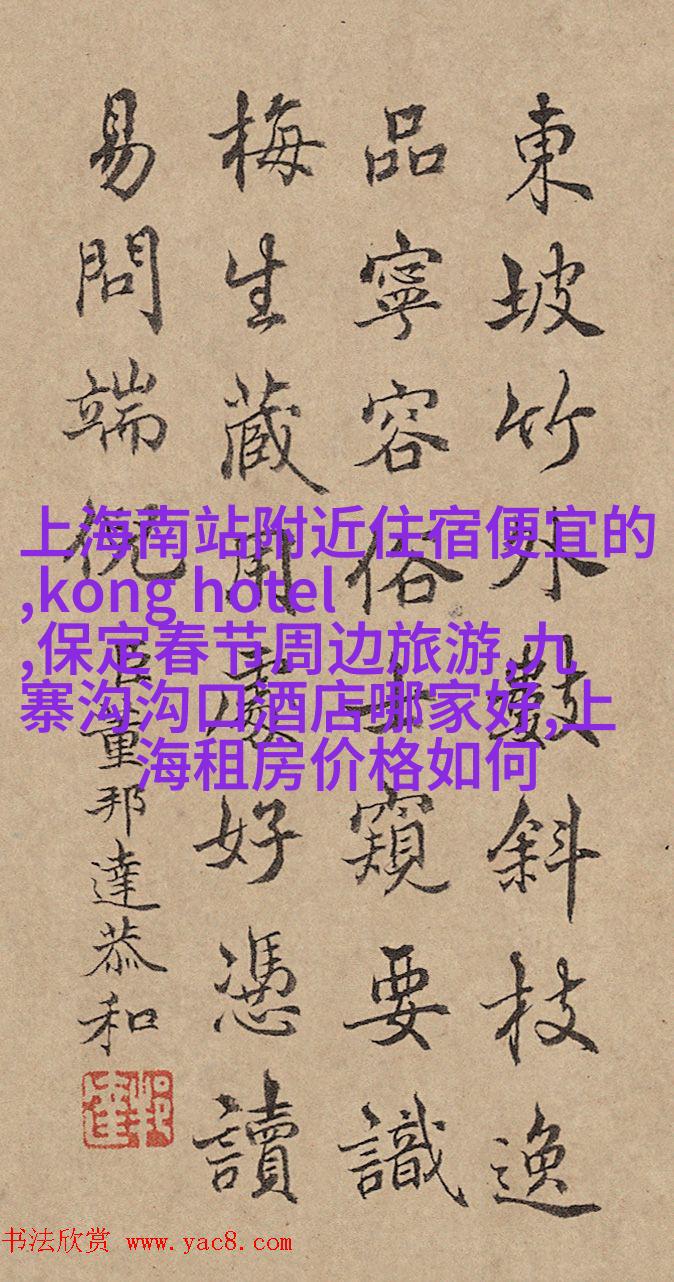 東坡竹外數斜枝逸
品寧容俗士窺要識
梅生藏用處好憑讀
易問端倪
臣董邦達恭和
上海南站附近住宿便宜的
,kong hotel
,保定春节周边旅游,九
寨沟沟口酒店哪家好,上
海租房价格如何
书法欣赏 www.yac8.com